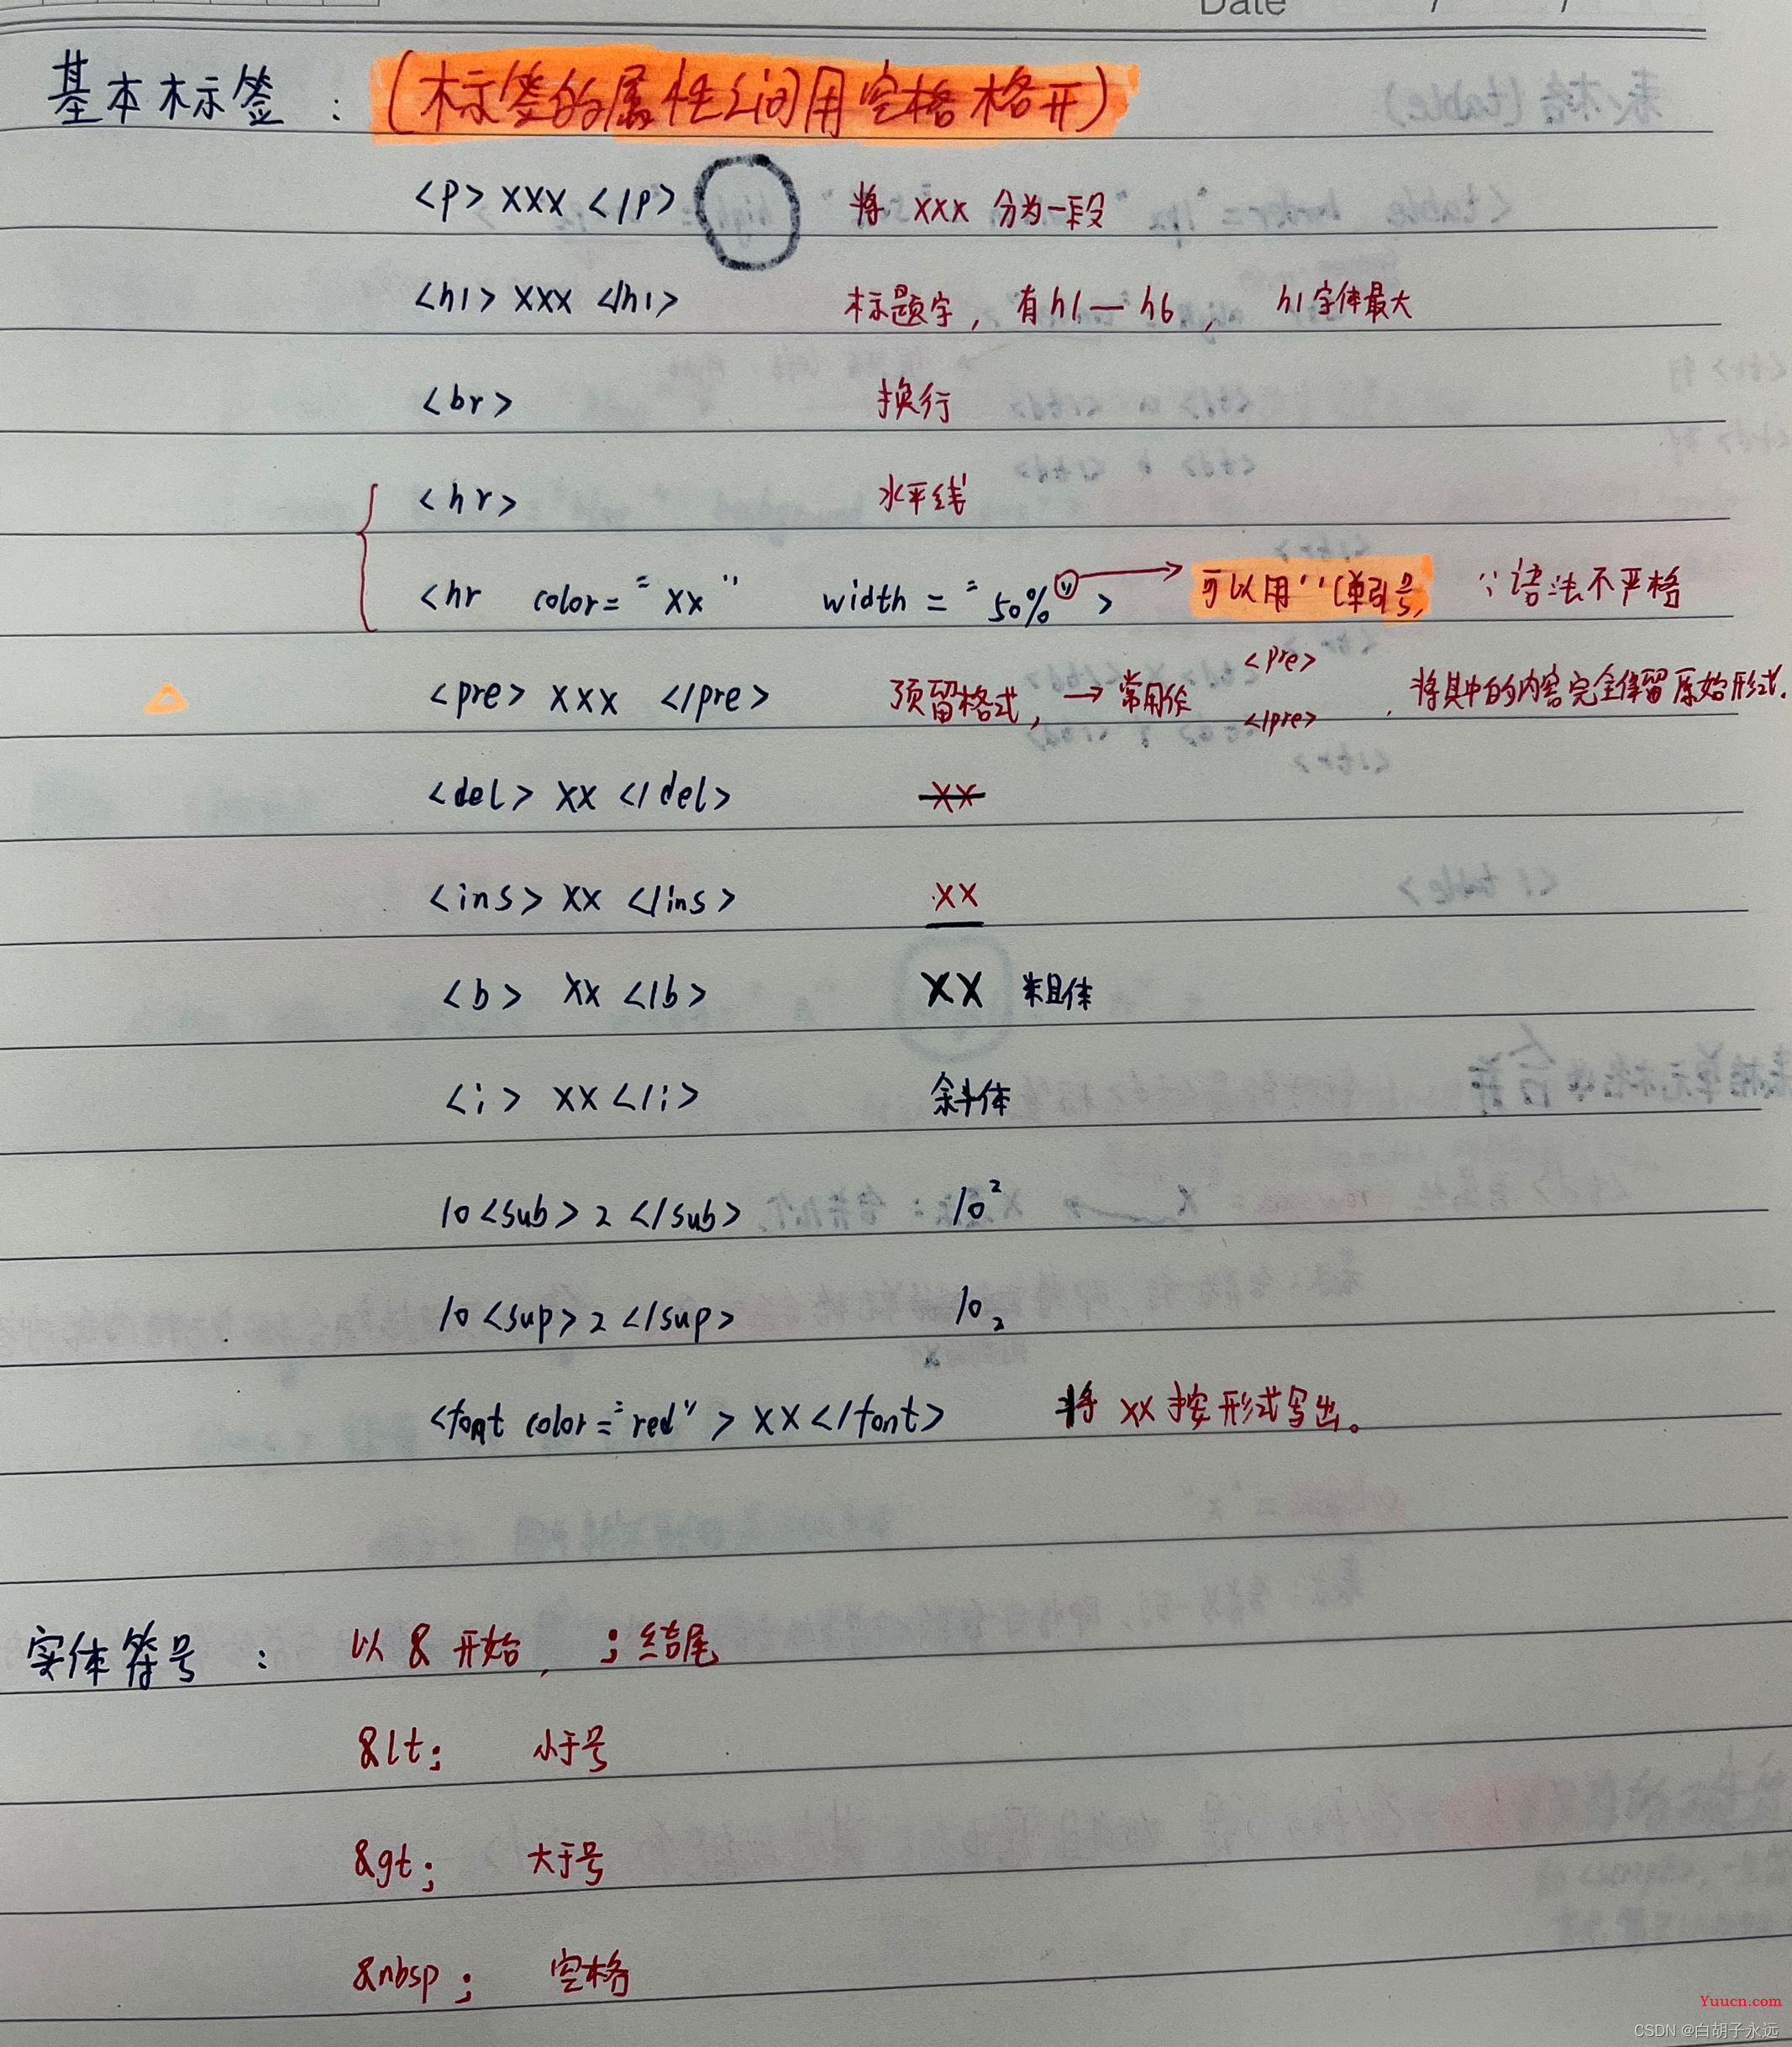 Date / /
基本标签：(标签的属性之间用空格格开)
<p> xxx </p> 将 xxx 分为一段
<h1> xxx </h1> 标题字，有h1—h6， h1字体最大
<br> 换行
<hr> 水平线
<hr color="xx" width="50%"> → 可以用''(单引号) ∵语法不严格
<pre> xxx </pre> 预留格式，→ 常用作 <pre> </pre>，将其中的内容完全保留原始形式.
<del> xx </del> xx
<ins> xx </ins> xx
<b> xx </b> xx 粗体
<i> xx </i> 斜体
10<sub> 2 </sub> 10²
10<sup> 2 </sup> 10₂
<font color="red"> xx </font> 将 xx 按形式写出。
实体符号： 以 & 开始，；结尾
&lt; 小于号
&gt; 大于号
&nbsp; 空格
Yuucn.com
CSDN @白胡子永远